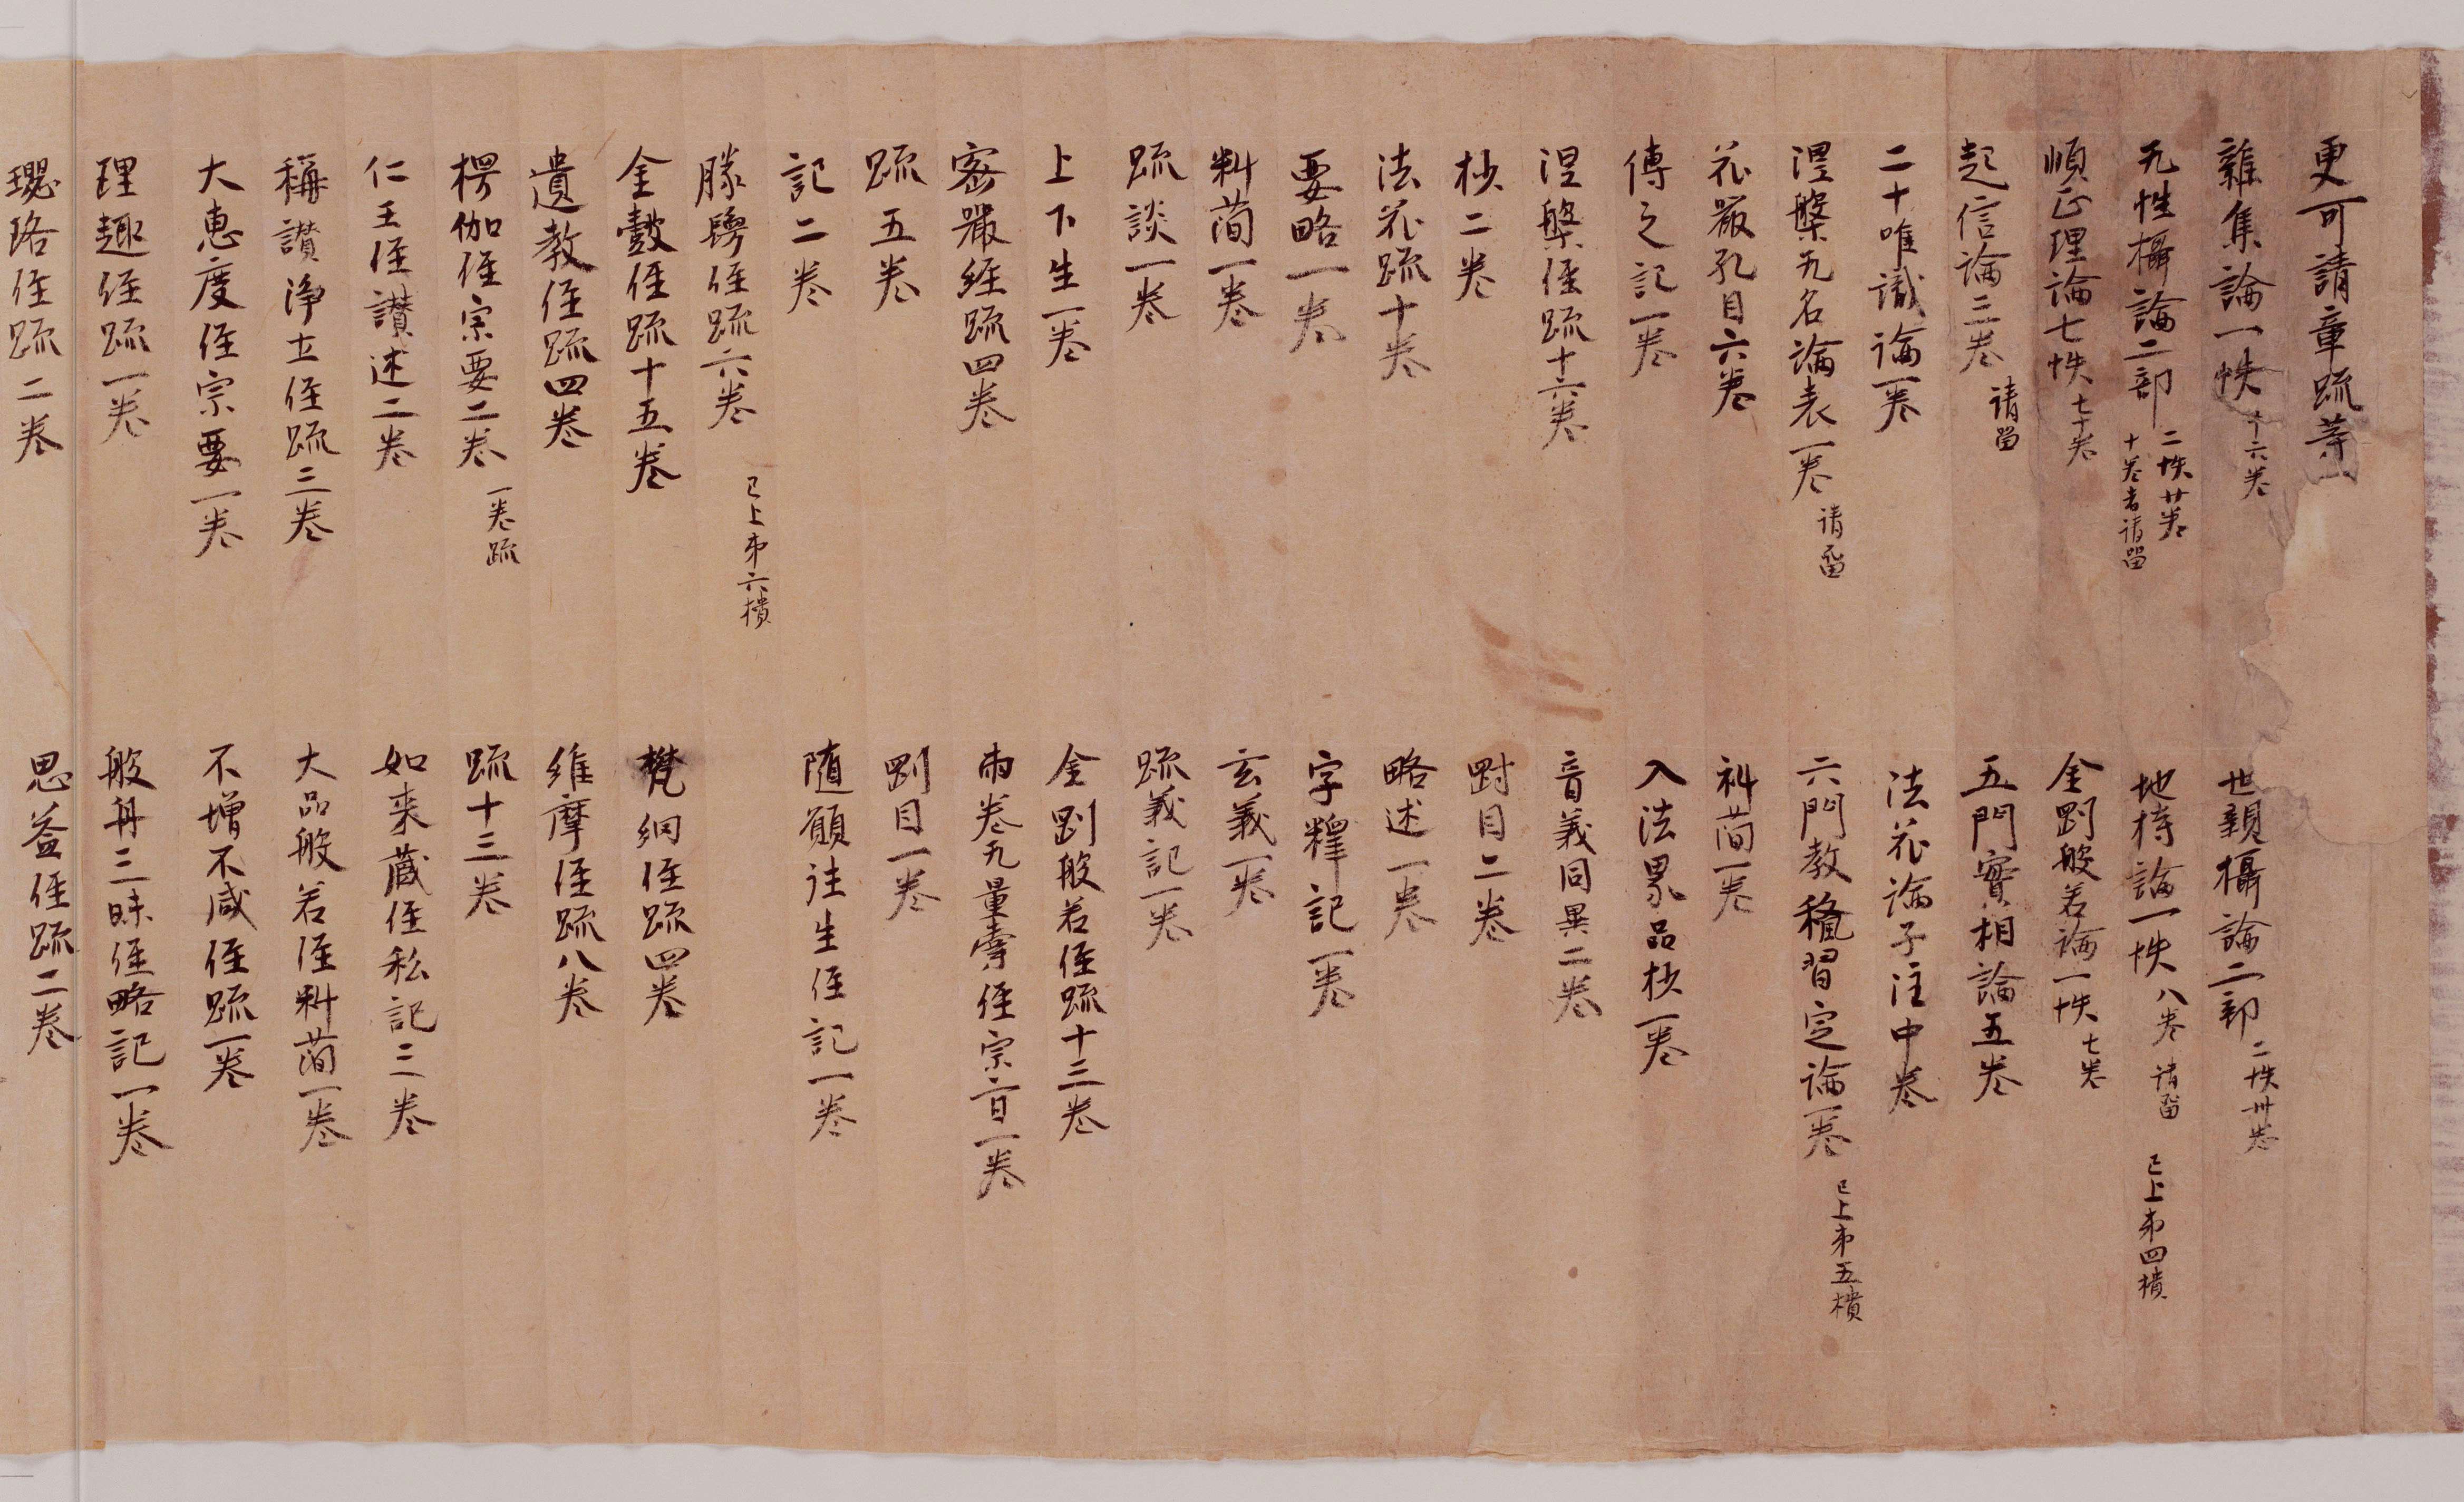 更可請章疏等
雜集論一帙 十六卷
世親攝論二部 二帙卅卷
无性攝論二部 二帙廿卷 十卷者請留
地持論一帙 八卷 請留 已上第四樻
順正理論七帙 七十卷
金剛般若論一帙 七卷
起信論三卷 請留
五門實相論五卷
二十唯識論一卷
法花論子注中卷
涅槃无名論表一卷 請留
六門教授習定論一卷 已上第五樻
花嚴孔目六卷
料簡一卷
傳之記一卷
入法界品抄一卷
涅槃經疏十六卷
音義同異二卷
抄二卷
對目二卷
法花疏十卷
略述一卷
要略一卷
字釋記一卷
料簡一卷
玄義一卷
疏談一卷
疏義記一卷
上下生一卷
金剛般若經疏十三卷
密嚴經疏四卷
兩卷无量壽經宗旨一卷
疏五卷
剛目一卷
記二卷
随願往生經記一卷
勝鬘經疏六卷 已上第六樻
金鼓經疏十五卷
梵網經疏四卷
遺教經疏四卷
維摩經疏八卷
楞伽經宗要二卷 一卷疏
疏十三卷
仁王經讃述二卷
如来藏經私記三卷
稱讃浄土經疏三卷
大品般若經料簡一卷
大惠度經宗要一卷
不增不減經疏一卷
理趣經疏一卷
般舟三昧經略記一卷
瓔珞經疏二卷
思益經疏二卷